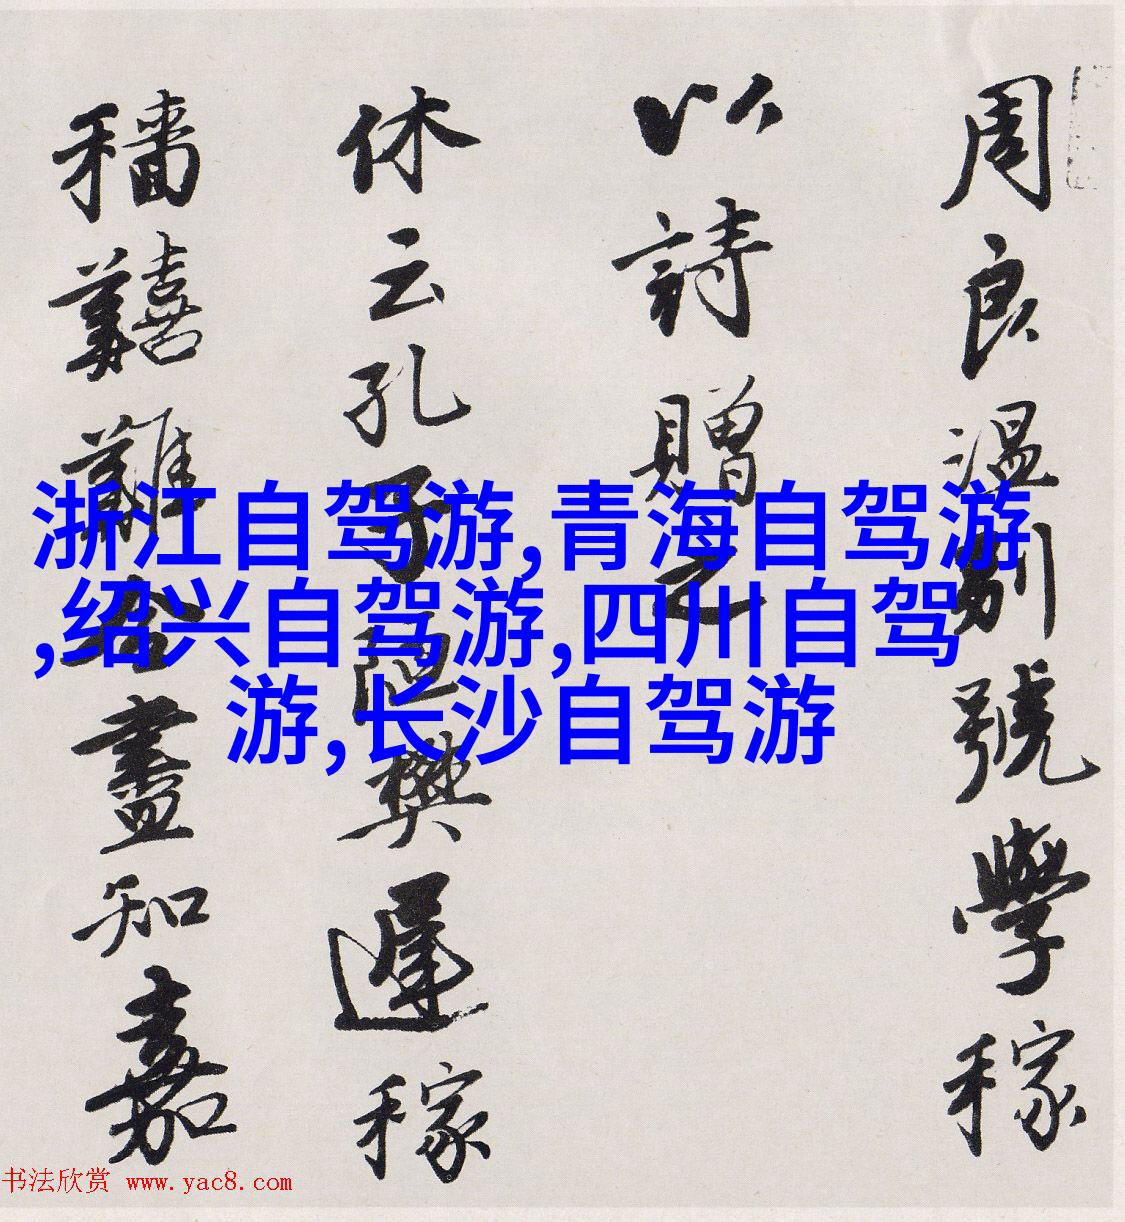 周良温别號學稼
以詩贈之
休云孔子陋樊遲稼
穡囏難公盡知嘉
浙江自驾游,青海自驾游
,绍兴自驾游,四川自驾
游,长沙自驾游
书法欣赏 www.yac8.com